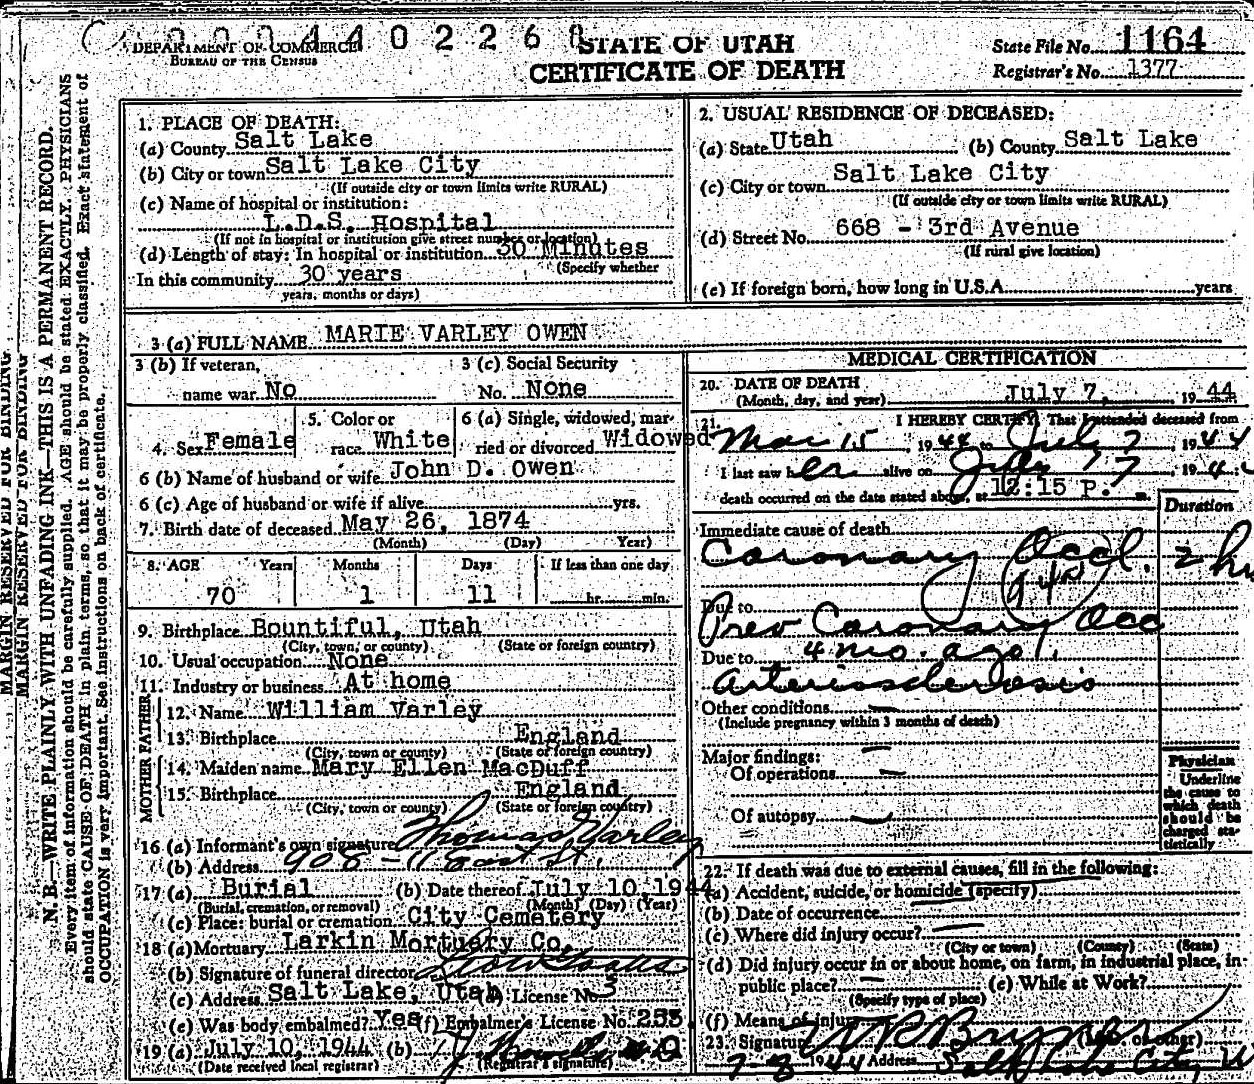 0004402268
DEPARTMENT OF COMMERCE
BUREAU OF THE CENSUS
STATE OF UTAH
CERTIFICATE OF DEATH
State File No. 1164
Registrar's No. 1377
MARGIN RESERVED FOR BINDING
MARGIN RESERVED FOR BINDING
N. B.—WRITE PLAINLY WITH UNFADING INK—THIS IS A PERMANENT RECORD.
Every item of information should be carefully supplied. AGE should be stated EXACTLY. PHYSICIANS
should state CAUSE OF DEATH in plain terms, so that it may be properly classified. Exact statement of
OCCUPATION is very important. See instructions on back of certificate.
1. PLACE OF DEATH:
(a) County Salt Lake
(b) City or town Salt Lake City
(If outside city or town limits write RURAL)
(c) Name of hospital or institution:
L.D.S. Hospital
(If not in hospital or institution give street number or location)
(d) Length of stay: In hospital or institution 30 Minutes
(Specify whether
In this community 30 years
years, months or days)
2. USUAL RESIDENCE OF DECEASED:
(a) State Utah (b) County Salt Lake
(c) City or town Salt Lake City
(If outside city or town limits write RURAL)
(d) Street No. 668 - 3rd Avenue
(If rural give location)
(e) If foreign born, how long in U.S.A. years
3 (a) FULL NAME MARIE VARLEY OWEN
3 (b) If veteran,
name war No
3 (c) Social Security
No. None
4. Sex Female
5. Color or
race White
6 (a) Single, widowed, mar-
ried or divorced Widowed
6 (b) Name of husband or wife John D. Owen
6 (c) Age of husband or wife if alive yrs.
7. Birth date of deceased May 26, 1874
(Month) (Day) Year)
8. AGE Years Months Days If less than one day
70 1 11 hr. min.
9. Birthplace Bountiful, Utah
(City, town, or county) (State or foreign country)
10. Usual occupation None
11. Industry or business At home
FATHER
12. Name William Varley
13. Birthplace England
(City, town or county) (State of foreign country)
MOTHER
14. Maiden name Mary Ellen MacDuff
15. Birthplace England
(City, town or county) (State or foreign country)
16 (a) Informant's own signature Thomas Varley
(b) Address 908 - 11 East St.
17 (a) Burial (b) Date thereof July 10, 1944
(Burial, cremation, or removal) (Month) (Day) (Year)
(c) Place: burial or cremation City Cemetery
18 (a) Mortuary Larkin Mortuary Co.
(b) Signature of funeral director
(c) Address Salt Lake, Utah (d) License No. 3
(e) Was body embalmed? Yes (f) Embalmer's License No. 255
19 (a) July 10, 1944 (b)
(Date received local registrar) (Registrar's signature)
MEDICAL CERTIFICATION
20. DATE OF DEATH
(Month, day, and year) July 7, 1944
21. I HEREBY CERTIFY, That I attended deceased from
Mar 15, 1944 to July 7, 1944
I last saw her alive on July 7, 194
death occurred on the date stated above, at 12:15 P. m.
Duration
Immediate cause of death
Coronary Occl. 2 hr
94a
Due to
Prev Coronary Occ
Due to 4 mo. ago.
Arteriosclerosis
Other conditions —
(Include pregnancy within 3 months of death)
Major findings: —
Of operations —
Of autopsy —
Physician
Underline
the cause to
which death
should be
charged sta-
tistically
22. If death was due to external causes, fill in the following:
(a) Accident, suicide, or homicide (specify)
(b) Date of occurrence
(c) Where did injury occur? —
(City or town) (County) (State)
(d) Did injury occur in or about home, on farm, in industrial place, in
public place? — (e) While at Work?
(Specify type of place)
(f) Means of injury
23. Signature (M.D. or other)
7-8 1944 Address Salt Lake City